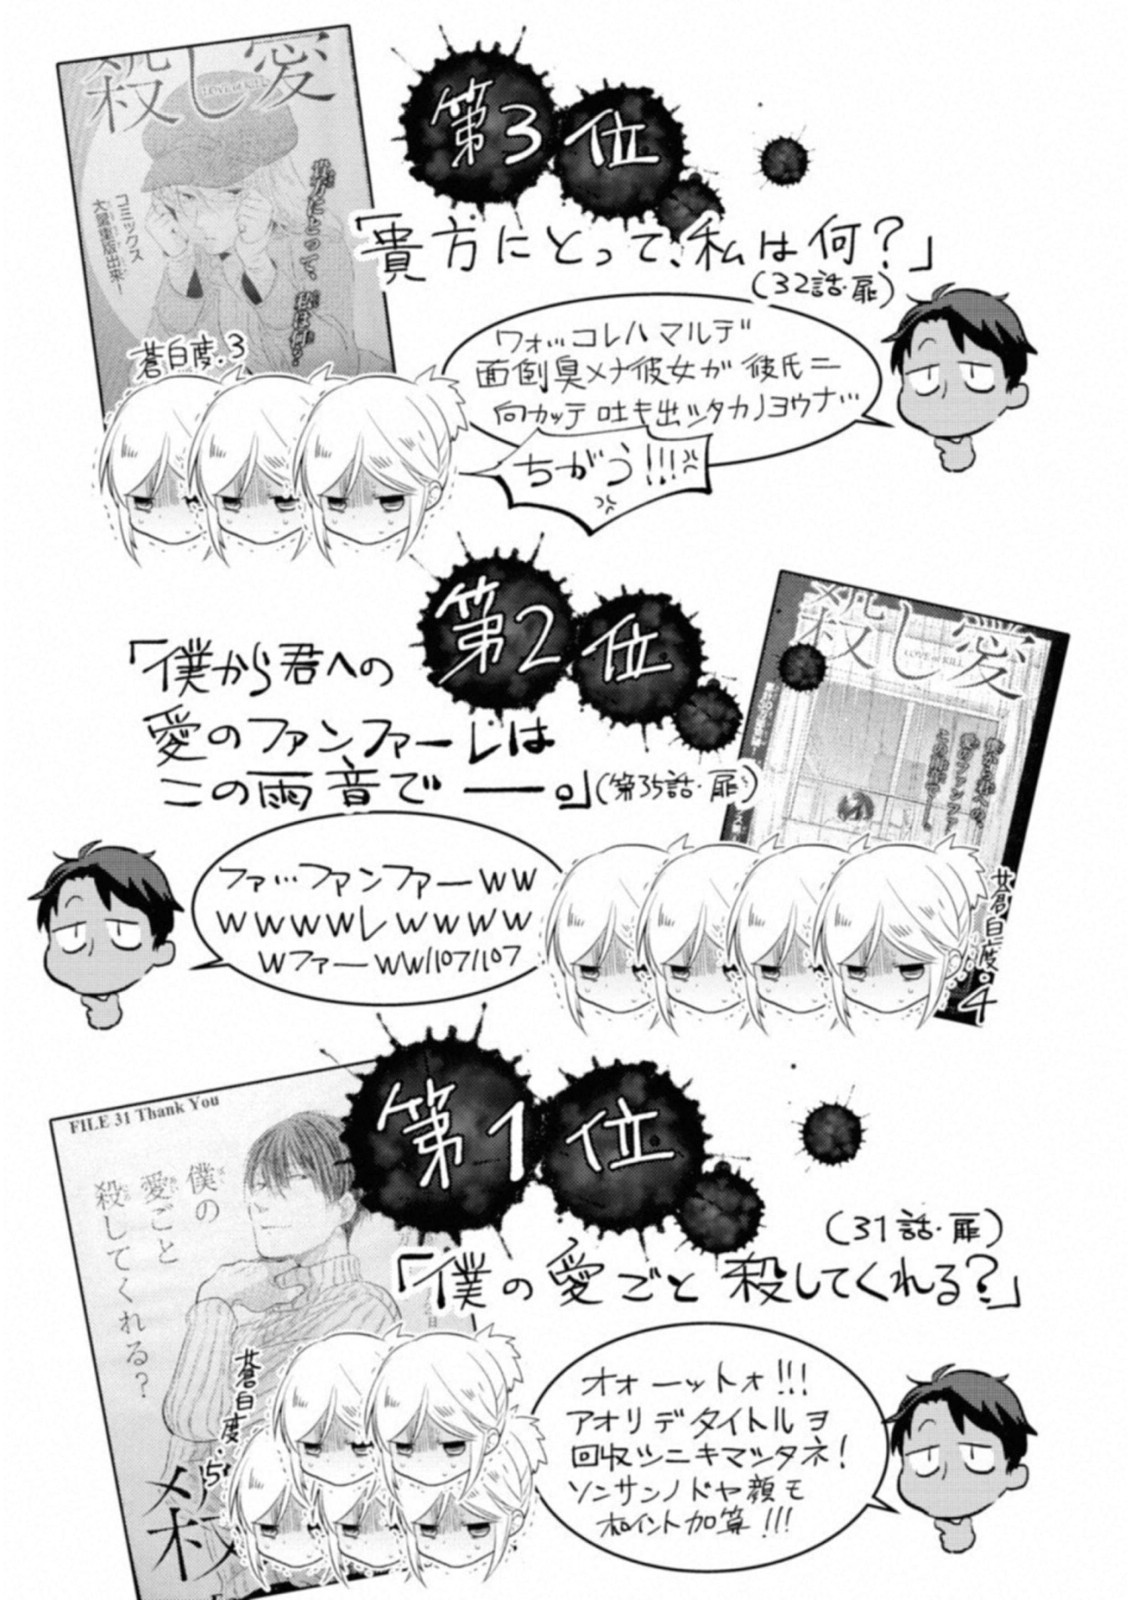 殺し愛
LOVE of KILL
貴方にとって、私は何?
コミックス
大量重版出来!
第3位
「貴方にとって、私は何?」
(32話・扉)
蒼白度.3
ワォ…コレハマルデ
面倒臭メナ彼女ガ彼氏ニ
向カッテ吐キ出シタカノヨウナ…
ちがう!!!
第2位
「僕から君への
愛のファンファーレは
この雨音で――。」(第35話・扉)
殺し愛
LOVE of KILL
僕から君への、
愛のファンファーレは
この雨音で――。
ファ…ファンファーww
wwwwwレwwww
wファーww/107/107
蒼白度.4
第1位
FILE 31 Thank You
僕の
愛ごと
殺してくれる?
(31話・扉)
「僕の愛ごと殺してくれる?」
蒼白度.5
オォーットォ!!!
アオリデタイトルヲ
回収シニキマシタネ!
ソンサンノドヤ顔モ
ポイント加算!!!
殺